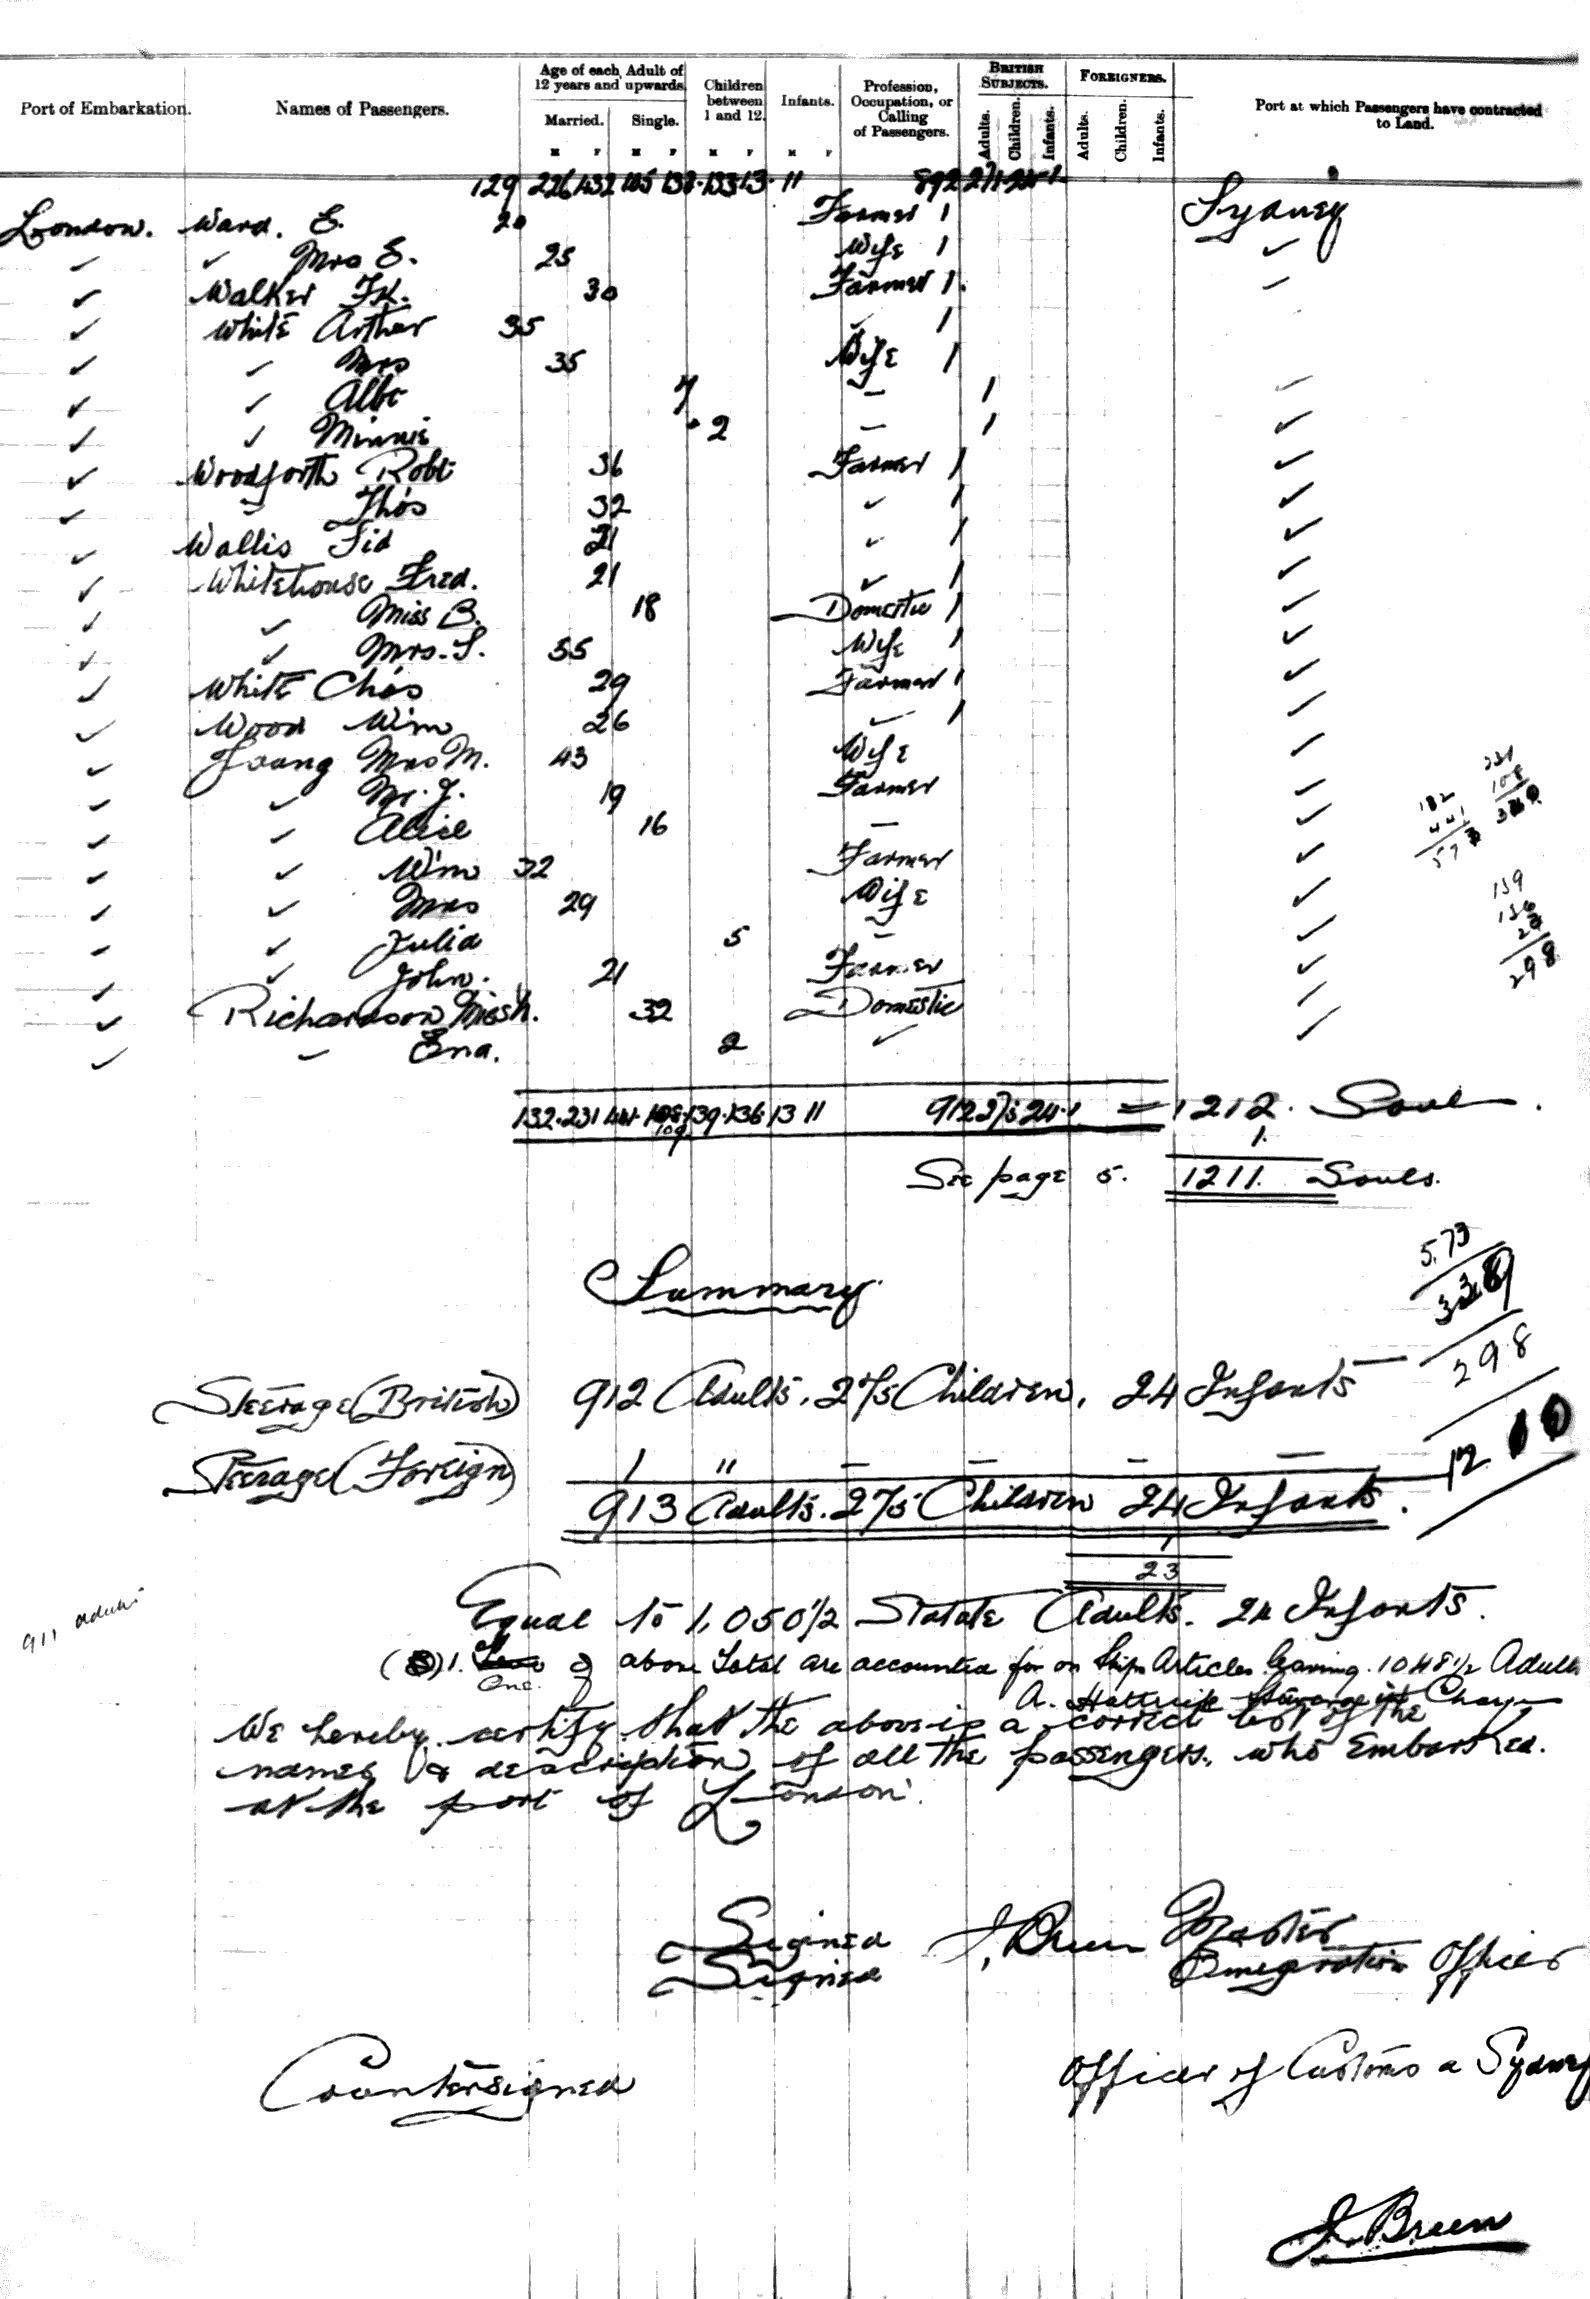 Port of Embarkation. Names of Passengers. Age of each Adult of 12 years and upwards. Children between 1 and 12. Infants. Profession, Occupation, or Calling of Passengers. BRITISH SUBJECTS. FOREIGNERS. Port at which Passengers have contracted to Land.
Married. Single. Adults. Children. Infants. Adults. Children. Infants.
M F M F M F M F
129 226 432 105 138 133 13 11 892 271 24 1
London. Ward. E. 20 Farmer 1 Sydney
✓ ✓ Mrs E. 25 Wife 1 ✓
✓ Walker FK. 30 Farmer 1 ✓
✓ White Arthur 35 ✓ 1
✓ ✓ Mrs 35 Wife 1
✓ ✓ Albt 7 – 1 ✓
✓ ✓ Minnie 2 – 1 ✓
✓ Woodforth Robt 36 Farmer 1 ✓
✓ " Thos 32 ✓ 1 ✓
✓ Wallis Sid 21 ✓ 1 ✓
✓ Whitehouse Fred. 21 ✓ 1 ✓
✓ ✓ Miss B. 18 Domestic 1 ✓
✓ ✓ Mrs. S. 55 Wife 1 ✓
✓ White Chas 29 Farmer 1 ✓
✓ Wood Wm 26 ✓ 1 ✓
✓ Young Mrs M. 43 Wife ✓
✓ ✓ Mr. J. 19 Farmer ✓
✓ ✓ Alice 16 – ✓
✓ ✓ Wm 32 Farmer ✓
✓ ✓ Mrs 29 Wife ✓
✓ ✓ Julia 5 – ✓
✓ ✓ John. 21 Farmer ✓
✓ Richardson Miss H. 32 Domestic ✓
✓ ✓ Ena. 2 ✓ ✓
231
108
132
441
573
139
136
298
132 . 231 441 108 . 139 . 136 . 13 11 912 275 24 . 1 = 1212 . Souls.
109
1.
See page 5. 1211. Souls.
Summary.
573
298
Steerage (British) 912 Adults. 275 Children. 24 Infants
Steerage (Foreign) 1 " – – – –
913 Adults. 275 Children 24 Infants.
1
23
Equal to 1,050½ Statute Adults. 24 Infants.
911 adults
1. One of above Total are accounted for on Ships Articles leaving 1048½ Adults
A. Charge
We hereby certify that the above is a correct list of the
names & description of all the passengers. who Embarked.
at the port of London.
Signed J. Breen Master
Signed Emigration Officer
Countersigned Officer of Customs a Sydney
J. Breen